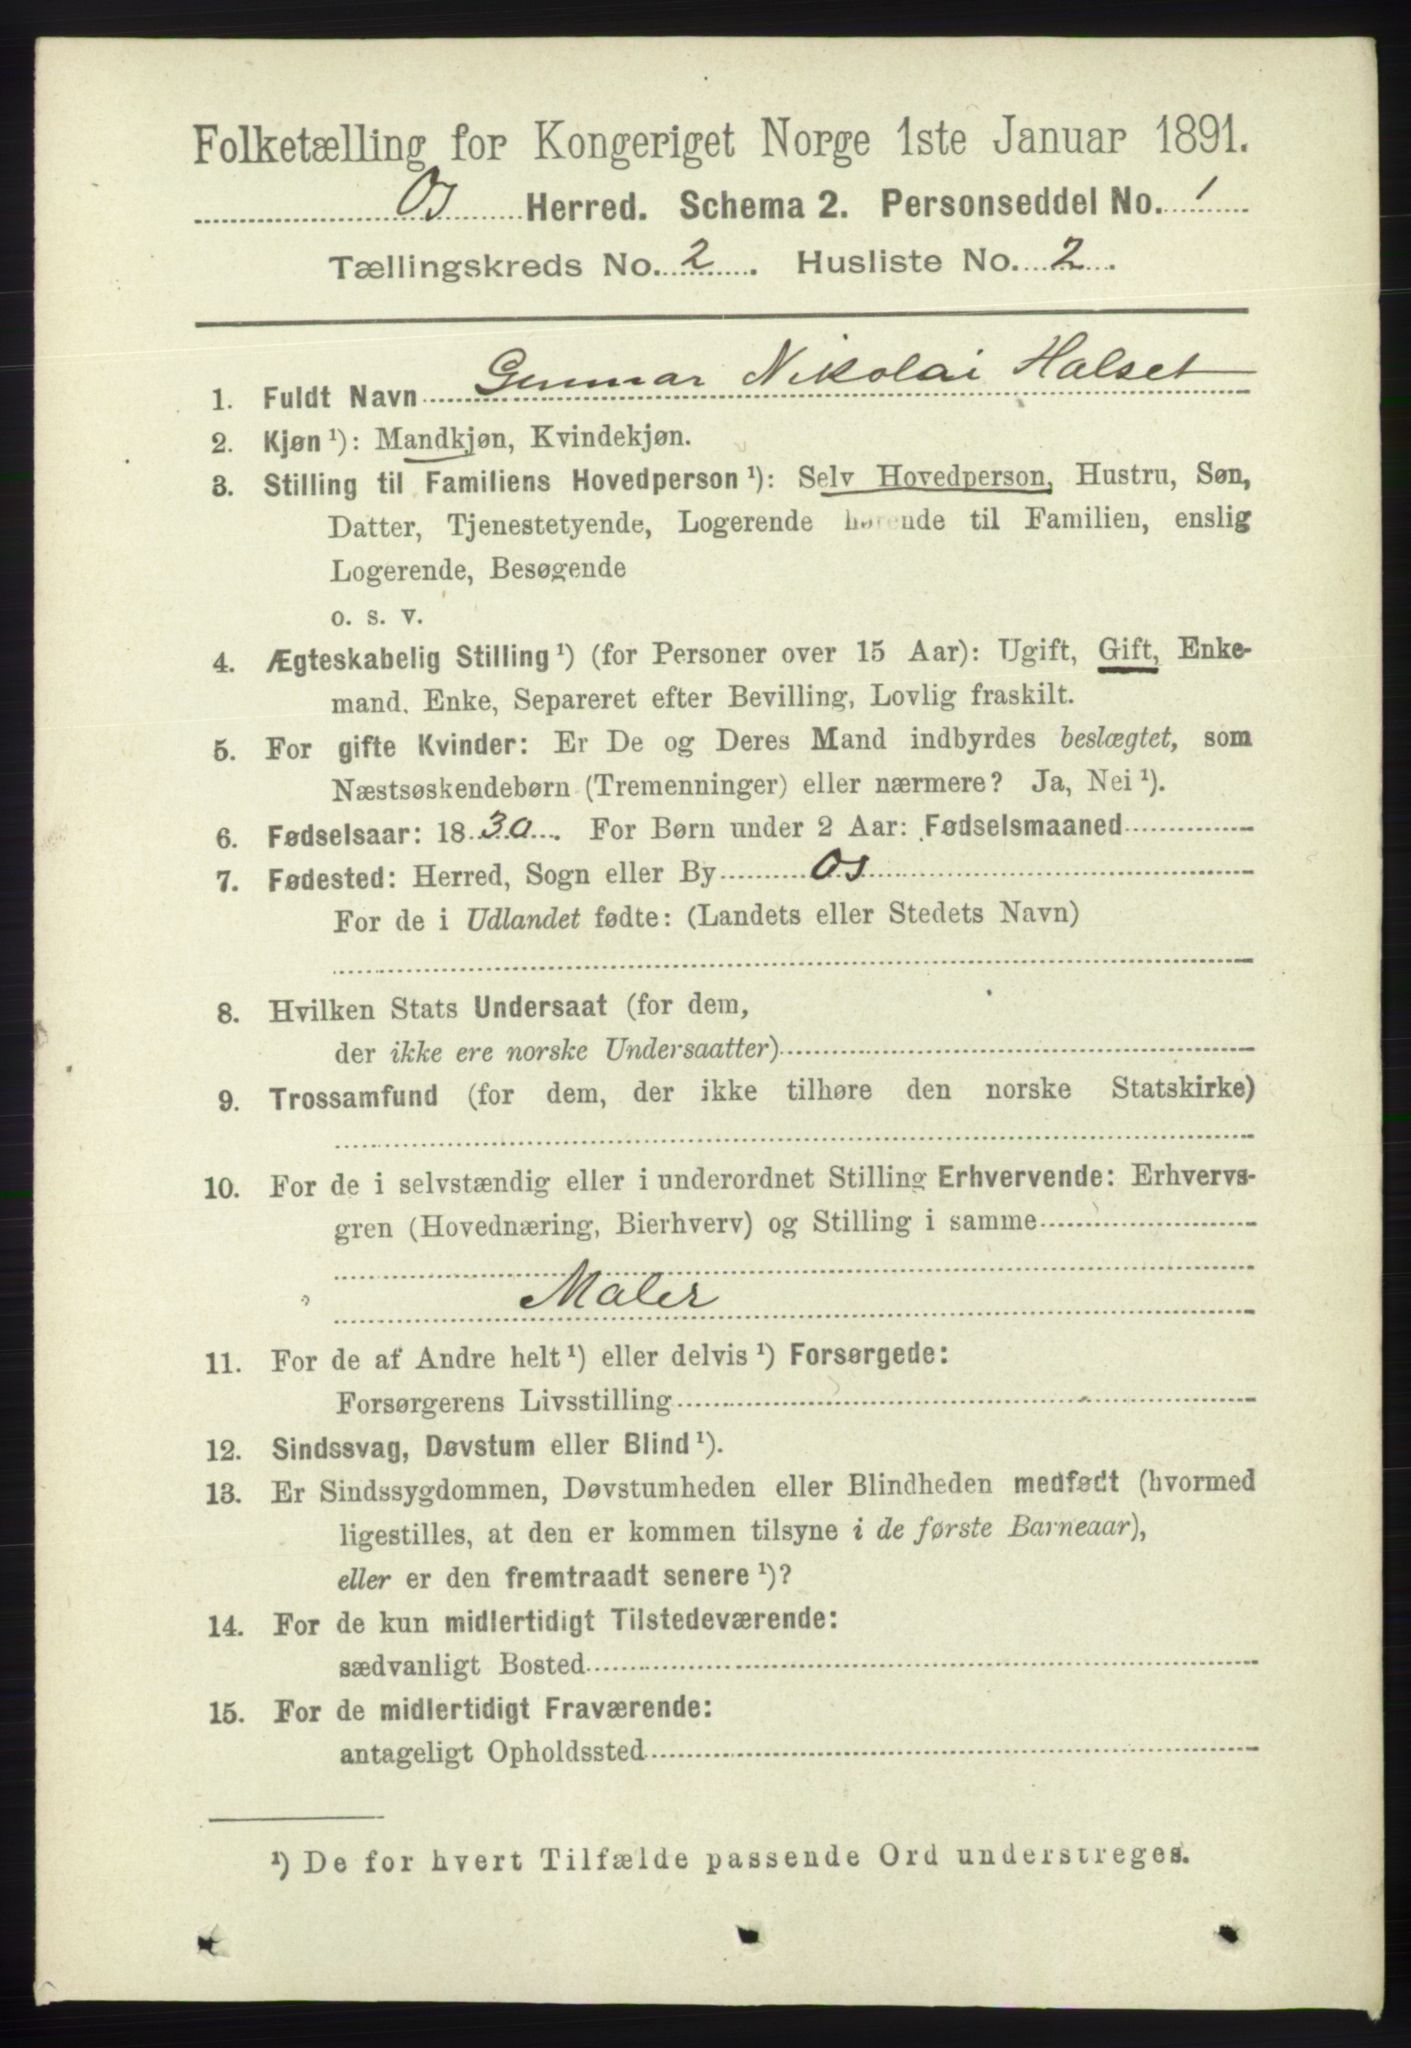 Folketælling for Kongeriget Norge 1ste Januar 1891.
Os Herred. Schema 2. Personseddel No. 1
Tællingskreds No. 2. Husliste No. 2.
1. Fuldt Navn Gunnar Nikolai Halset
2. Kjøn ¹): Mandkjøn, Kvindekjøn.
3. Stilling til Familiens Hovedperson ¹): Selv Hovedperson, Hustru, Søn,
Datter, Tjenestetyende, Logerende hørende til Familien, enslig
Logerende, Besøgende
o. s. v.
4. Ægteskabelig Stilling ¹) (for Personer over 15 Aar): Ugift, Gift, Enke-
mand. Enke, Separeret efter Bevilling, Lovlig fraskilt.
5. For gifte Kvinder: Er De og Deres Mand indbyrdes beslægtet, som
Næstsøskendebørn (Tremenninger) eller nærmere? Ja, Nei ¹).
6. Fødselsaar: 1830. For Børn under 2 Aar: Fødselsmaaned
7. Fødested: Herred, Sogn eller By Os
For de i Udlandet fødte: (Landets eller Stedets Navn)
8. Hvilken Stats Undersaat (for dem,
der ikke ere norske Undersaatter)
9. Trossamfund (for dem, der ikke tilhøre den norske Statskirke)
10. For de i selvstændig eller i underordnet Stilling Erhvervende: Erhvervs-
gren (Hovednæring, Bierhverv) og Stilling i samme
Maler
11. For de af Andre helt ¹) eller delvis ¹) Forsørgede:
Forsørgerens Livsstilling
12. Sindssvag, Døvstum eller Blind ¹).
13. Er Sindssygdommen, Døvstumheden eller Blindheden medfødt (hvormed
ligestilles, at den er kommen tilsyne i de første Barneaar),
eller er den fremtraadt senere ¹)?
14. For de kun midlertidigt Tilstedeværende:
sædvanligt Bosted
15. For de midlertidigt Fraværende:
antageligt Opholdssted
¹) De for hvert Tilfælde passende Ord understreges.